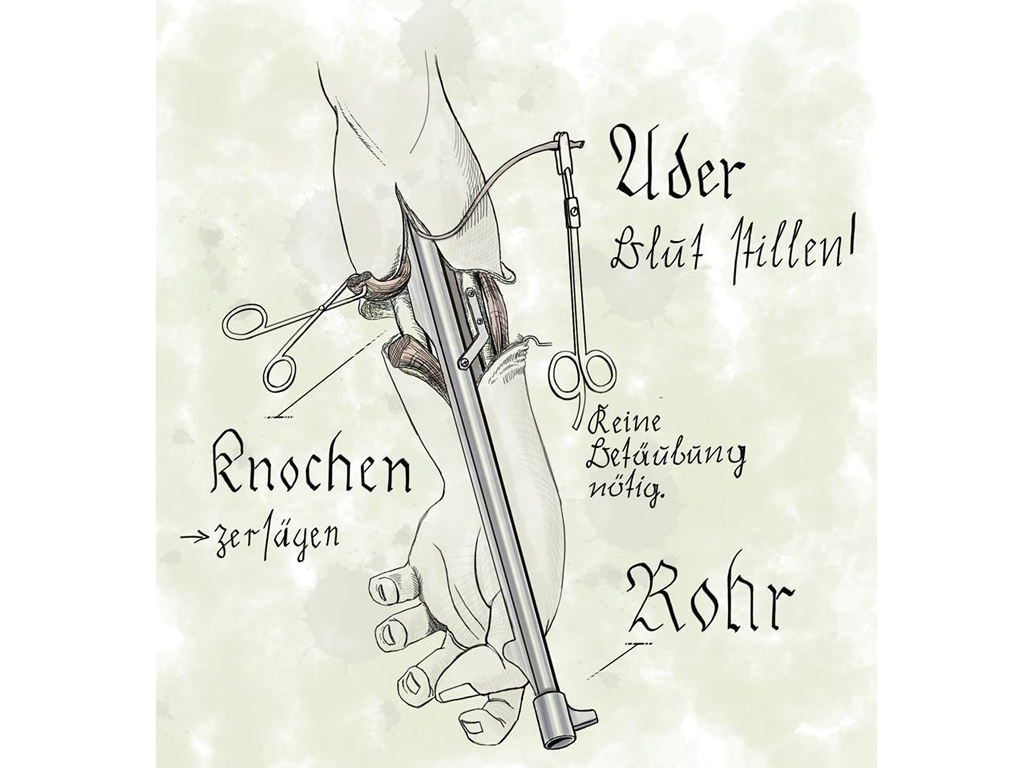 Ader
Blut stillen!
Keine
Betäubung
nötig.
Knochen
→ zersägen
Rohr